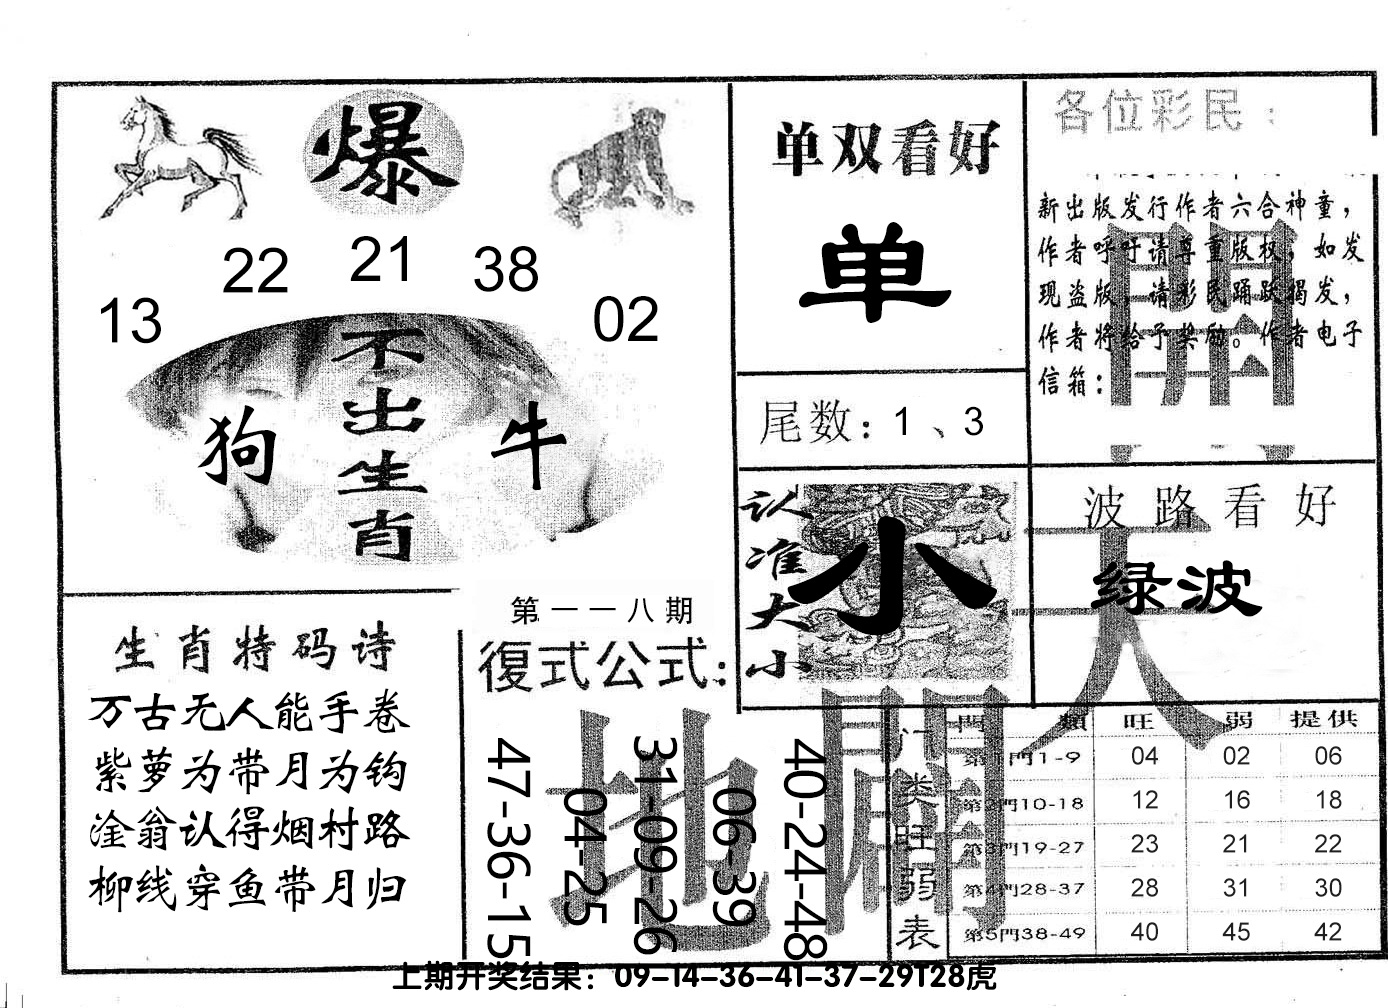 爆
13
22
21
38
02
不出生肖
狗
牛
生肖特码诗
万古无人能手卷
紫萝为带月为钩
淦翁认得烟村路
柳线穿鱼带月归
第一一八期
復式公式：
47-36-15
04-25
31-09-26
06-39
40-24-48
单双看好
单
尾数：1、3
认准大小
小
各位彩民：
新出版发行作者六合神童，
作者呼吁请尊重版权，如发
现盗版，请彩民踊跃揭发，
作者将给予奖励。作者电子
信箱：
波路看好
绿波
天
開
地
門类旺弱表
門類 旺 弱 提供
第1門1-9 04 02 06
第2門10-18 12 16 18
第3門19-27 23 21 22
第4門28-37 28 31 30
第5門38-49 40 45 42
上期开奖结果：09-14-36-41-37-29T28虎